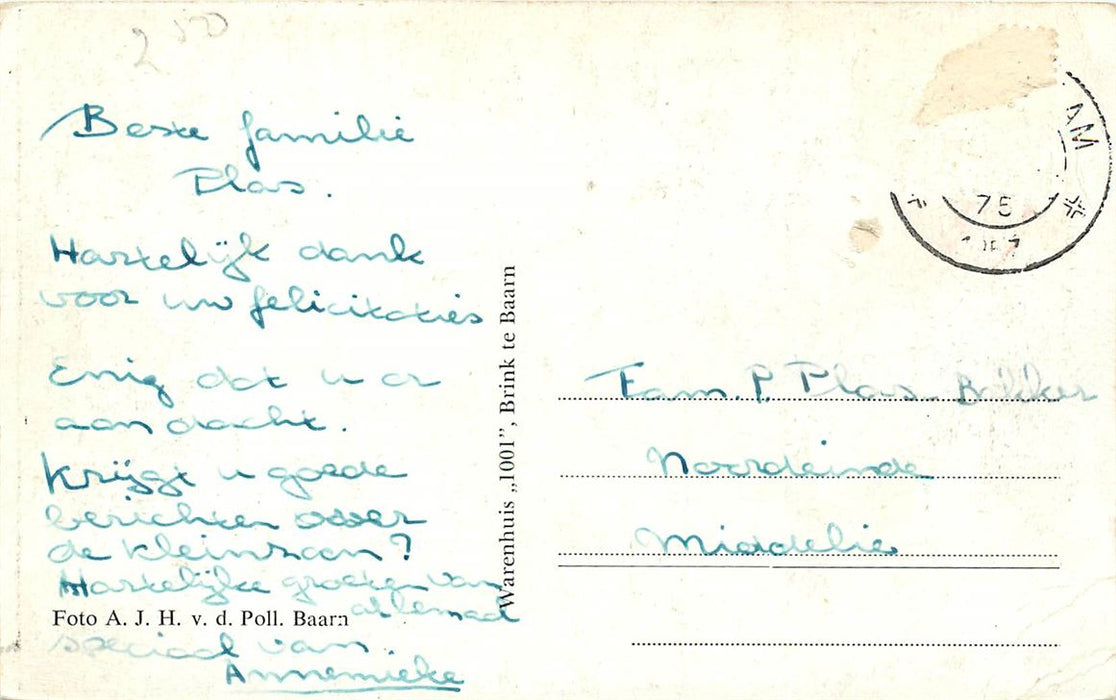 250
Beste familie
Plas.
Hartelijk dank
voor uw felicitaties
Enig dat u er
aan dacht.
Krijgt u goede
berichten over
de kleinzoon?
Hartelijke groeten van
allemaal
speciaal van
Annemieke
Foto A. J. H. v. d. Poll. Baarn
Warenhuis „1001”, Brink te Baarn
AM
75
Fam. P. Plas-Bakker
Noordeinde
Middelie